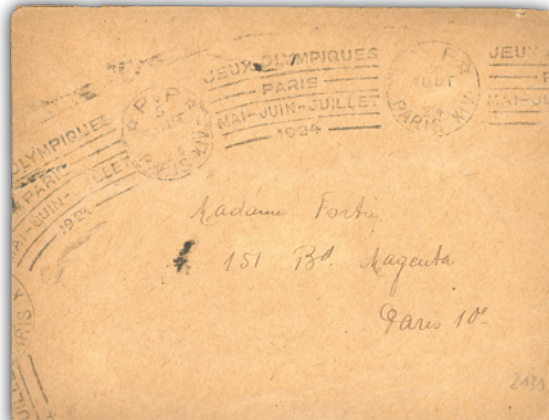 JEUX OLYMPIQUES
PARIS
MAI-JUIN-JUILLET
1924
P.P
AOUT
24
PARIS XIV
JEUX
MAI-JU
OLYMPIQUES
PARIS
MAI-JUIN-JUILLET
1924
P.P
5
AOUT
24
PARIS XIV
Madame Fortin
151 Bd. Magenta
Paris 10e
2131